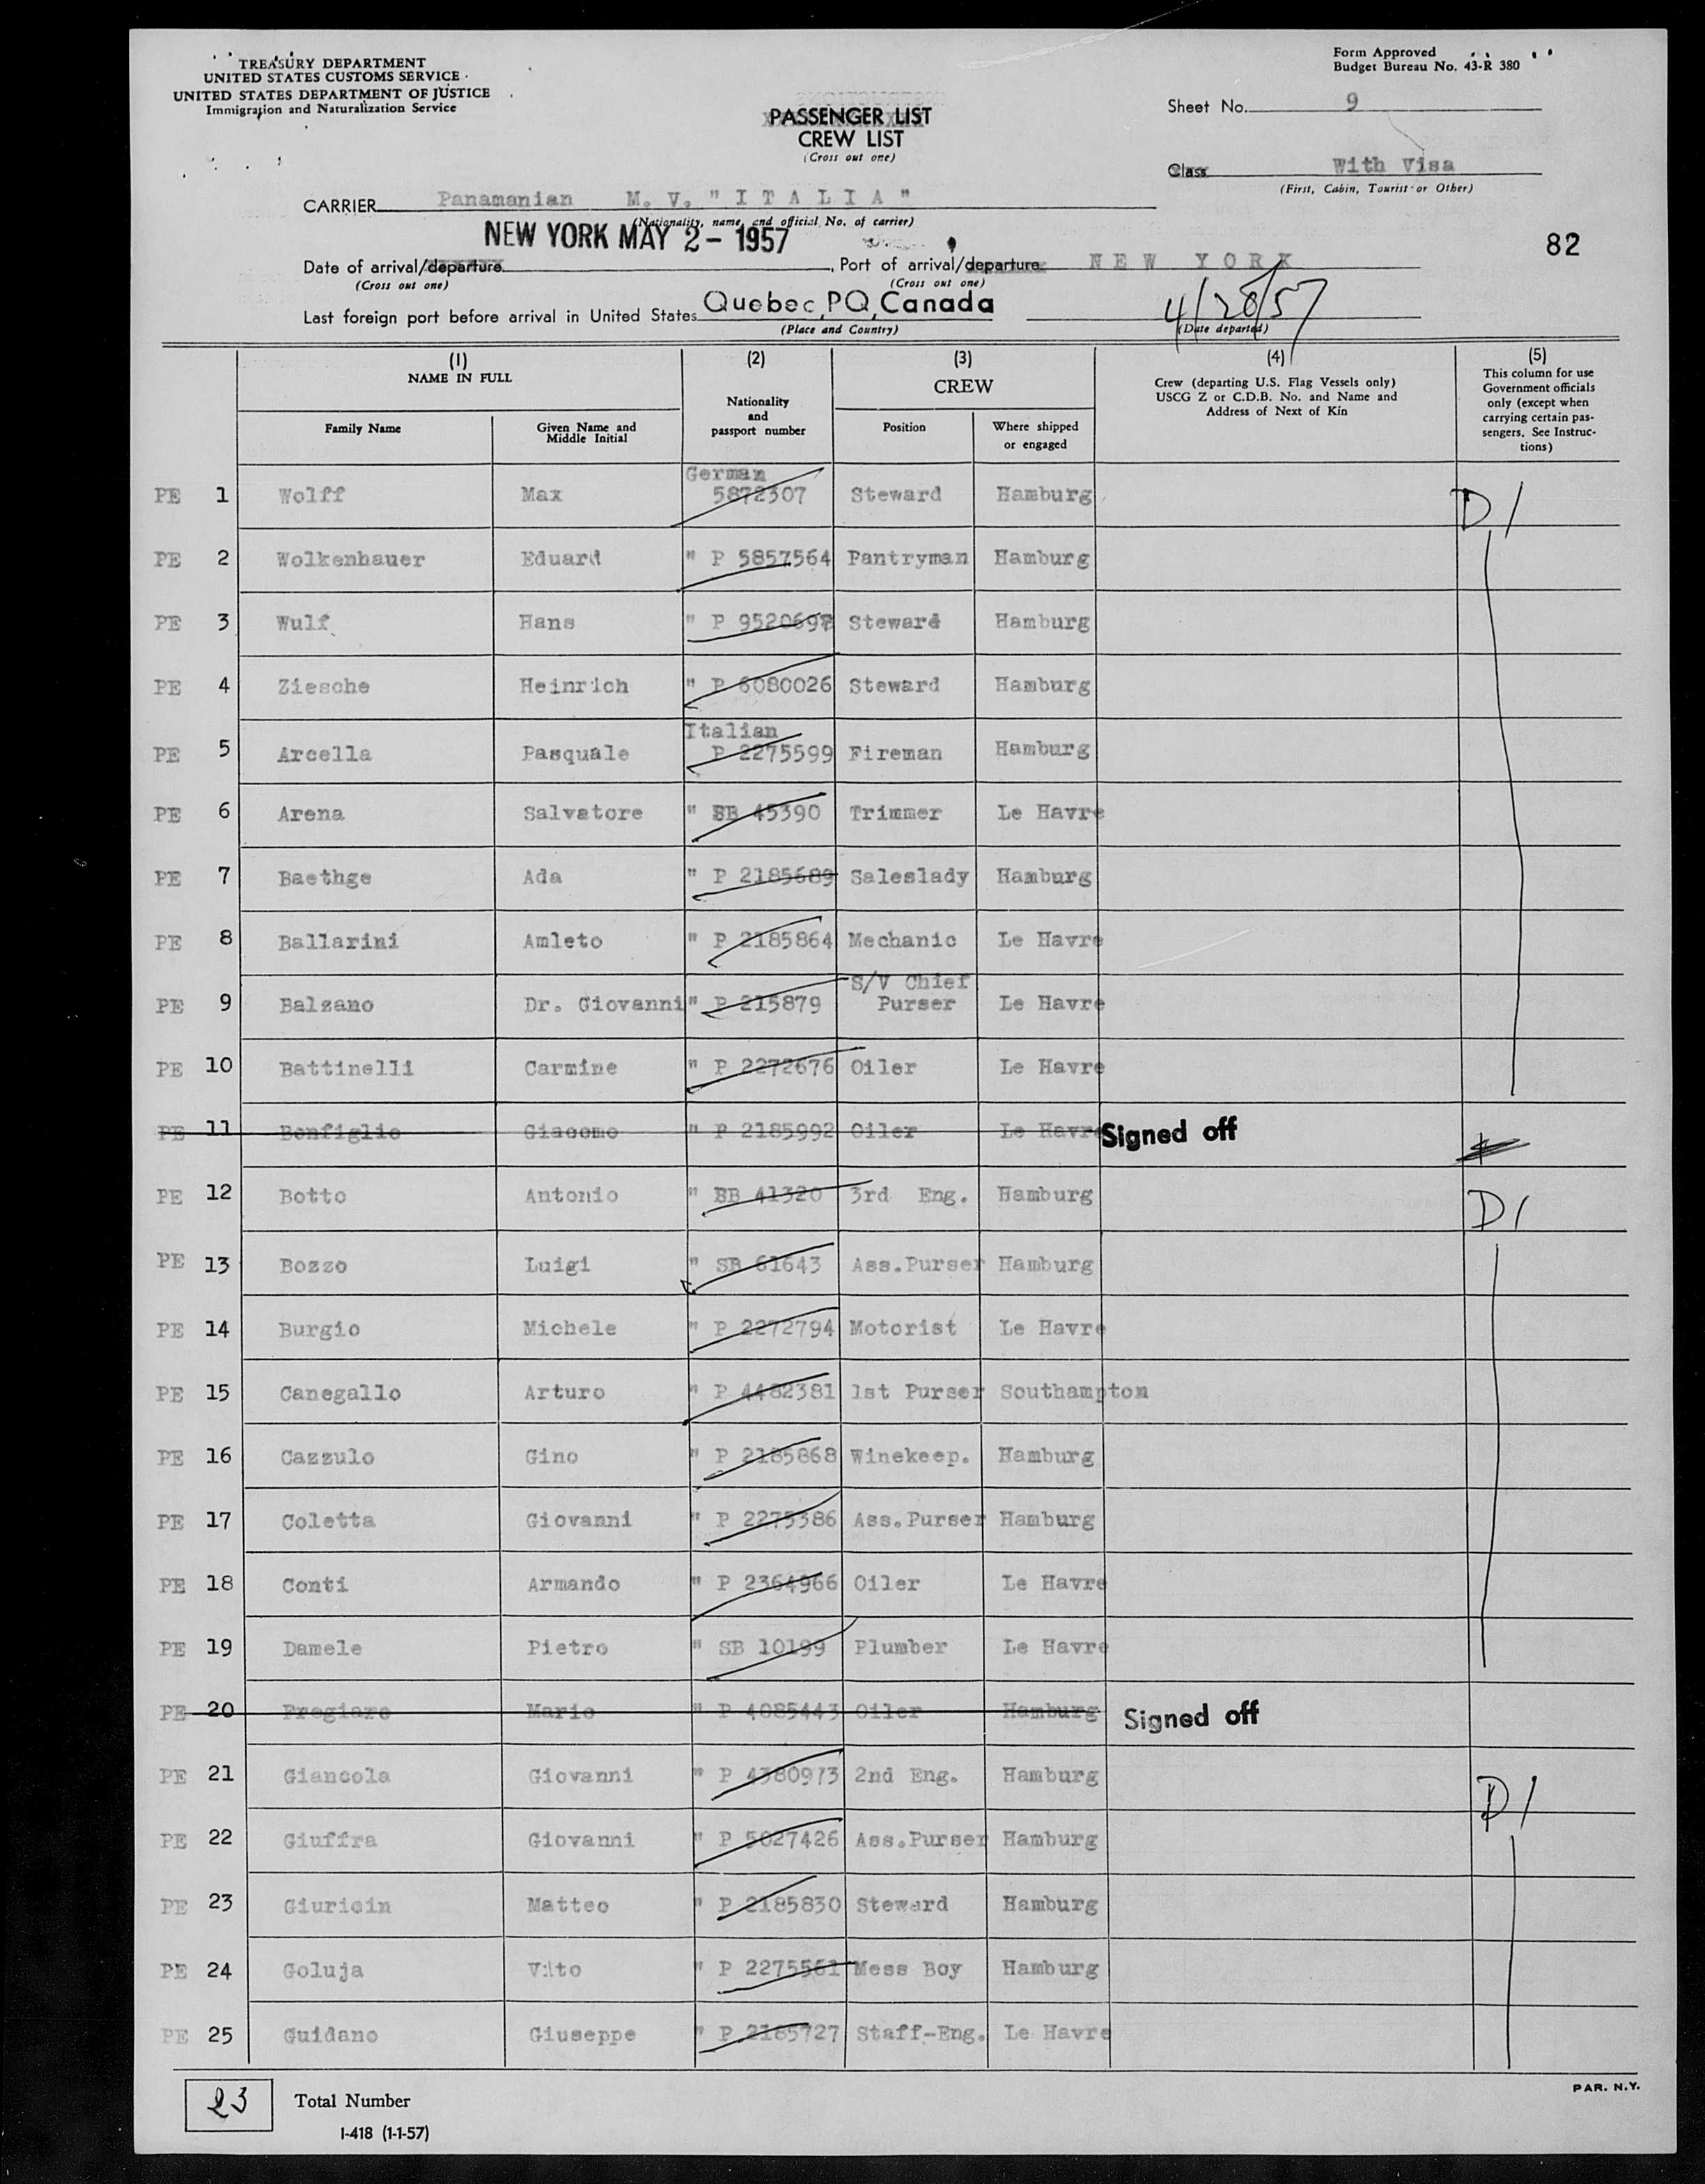 TREASURY DEPARTMENT
UNITED STATES CUSTOMS SERVICE
UNITED STATES DEPARTMENT OF JUSTICE
Immigration and Naturalization Service
Form Approved
Budget Bureau No. 43-R 380
PASSENGER LIST
CREW LIST
(Cross out one)
Sheet No. 9
Class With Visa
(First, Cabin, Tourist or Other)
CARRIER Panamanian M. V. "I T A L I A"
(Nationality, name, and official No. of carrier)
NEW YORK MAY 2 - 1957
82
Date of arrival/departure , Port of arrival/departure N E W Y O R K
(Cross out one) (Cross out one)
Last foreign port before arrival in United States Quebec, PQ, Canada 4/28/57
(Place and Country) (Date departed)
(1) (2) (3) (4) (5)
NAME IN FULL
Family Name
Given Name and Middle Initial
Nationality and passport number
CREW
Position
Where shipped or engaged
Crew (departing U.S. Flag Vessels only)
USCG Z or C.D.B. No. and Name and
Address of Next of Kin
This column for use
Government officials
only (except when
carrying certain pas-
sengers. See Instruc-
tions)
PE 1 Wolff Max German 5872307 Steward Hamburg D1
PE 2 Wolkenhauer Eduard " P 5857564 Pantryman Hamburg
PE 3 Wulf Hans " P 9520697 Steward Hamburg
PE 4 Ziesche Heinrich " P 6080026 Steward Hamburg
PE 5 Arcella Pasquale Italian P 2275599 Fireman Hamburg
PE 6 Arena Salvatore " SB 45390 Trimmer Le Havre
PE 7 Baethge Ada " P 2185689 Saleslady Hamburg
PE 8 Ballarini Amleto " P 2185864 Mechanic Le Havre
PE 9 Balzano Dr. Giovanni " P 215879 S/V Chief Purser Le Havre
PE 10 Battinelli Carmine " P 2272676 Oiler Le Havre
PE 11 Bonfiglio Giacomo " P 2185992 Oiler Le Havre Signed off
PE 12 Botto Antonio " SB 41320 3rd Eng. Hamburg D1
PE 13 Bozzo Luigi " SB 61643 Ass.Purser Hamburg
PE 14 Burgio Michele " P 2272794 Motorist Le Havre
PE 15 Canegallo Arturo " P 4482381 1st Purser Southampton
PE 16 Cazzulo Gino " P 2185868 Winekeep. Hamburg
PE 17 Coletta Giovanni " P 2275386 Ass.Purser Hamburg
PE 18 Conti Armando " P 2364966 Oiler Le Havre
PE 19 Damele Pietro " SB 10199 Plumber Le Havre
PE 20 Mario " P 4085443 Oiler Hamburg Signed off
PE 21 Giancola Giovanni " P 4380973 2nd Eng. Hamburg D1
PE 22 Giuffra Giovanni " P 5027426 Ass.Purser Hamburg
PE 23 Giuricin Matteo " P 2185830 Steward Hamburg
PE 24 Goluja Vito " P 2275561 Mess Boy Hamburg
PE 25 Guidano Giuseppe " P 2185727 Staff-Eng. Le Havre
23 Total Number
I-418 (1-1-57)
PAR. N.Y.